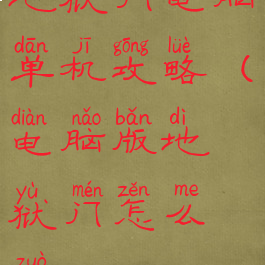 地狱门电脑
dān jī gōng lüè
单机攻略（
diàn nǎo bǎn dì
电脑版地
yù mén zěn me
狱门怎么
zuò